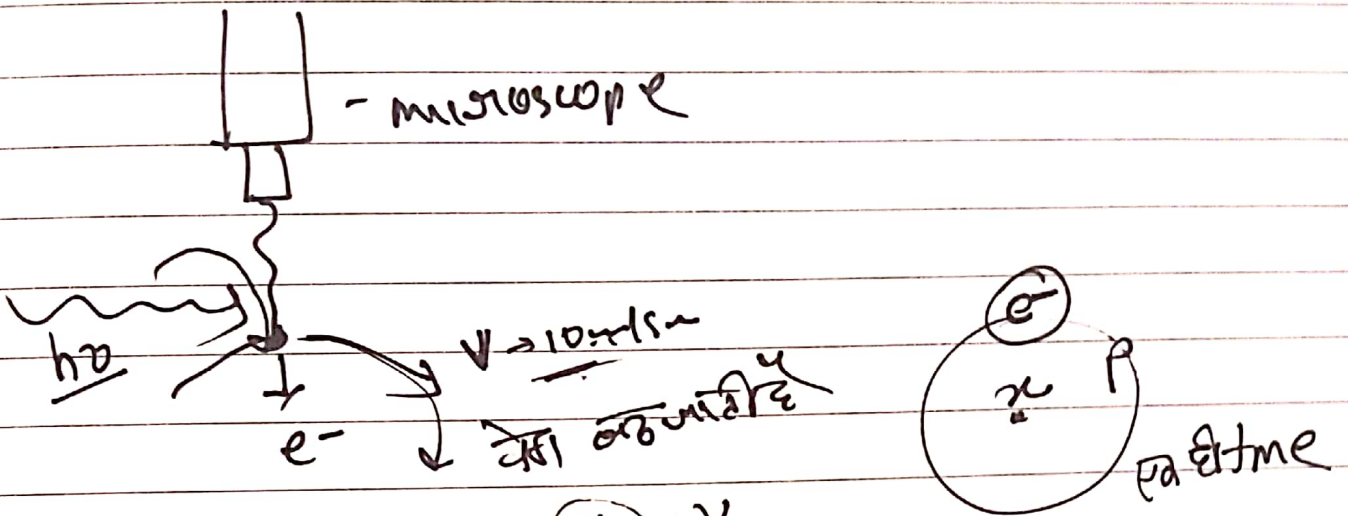 - microscope
hν
V → 10 m/s
e-
वेग बढ़ जाती है
e-
x
p
एक ही time